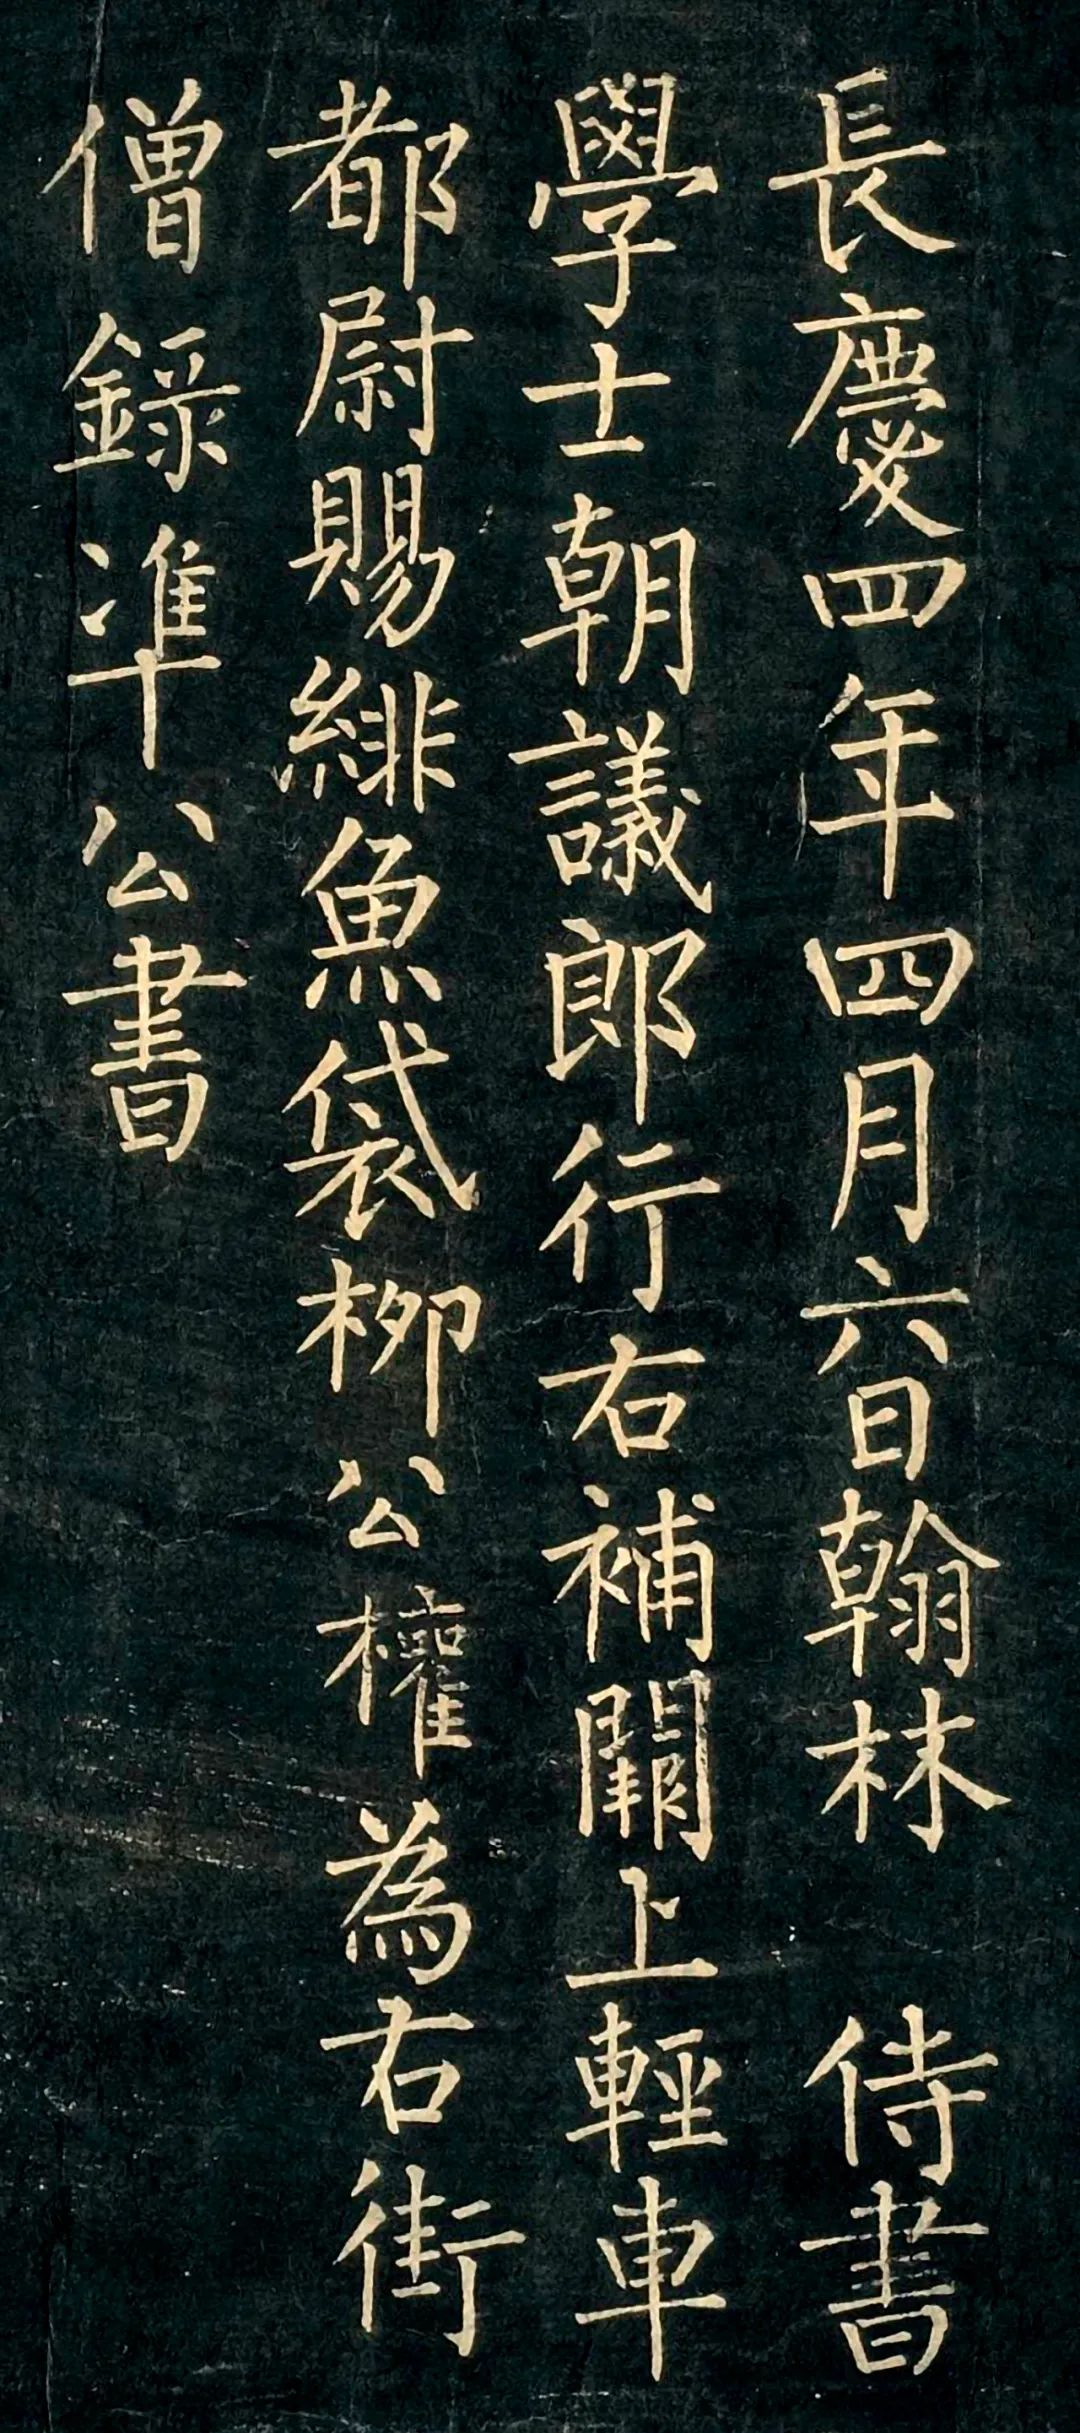 長慶四年四月六日翰林 侍書
學士朝議郎行右補闕上輕車
都尉賜緋魚袋柳公權為右街
僧錄準公書